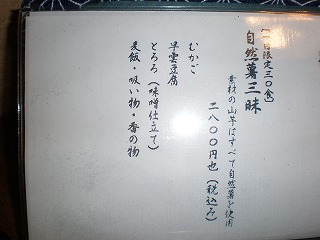 (一日限定三〇食)
自然薯三昧
素材の山芋はすべて自然薯を使用
二八〇〇円也(税込み)
むかご
早雲豆腐
とろろ(味噌仕立て)
麦飯・吸い物・香の物